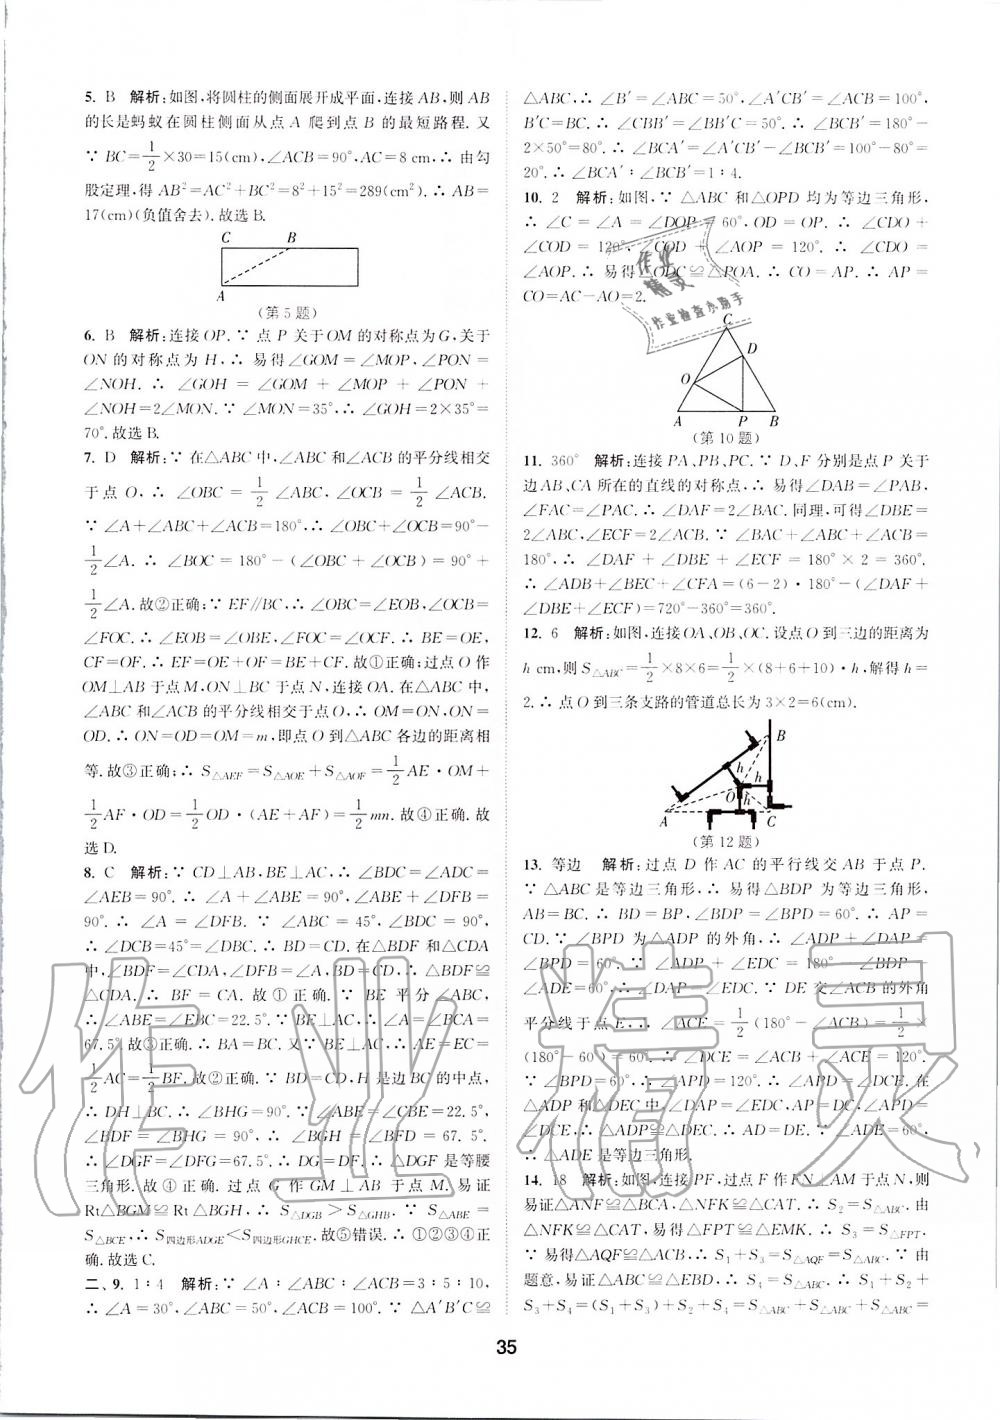 5. B 解析:如图,将圆柱的侧面展开成平面,连接 AB,则 AB
的长是蚂蚁在圆柱侧面从点 A 爬到点 B 的最短路程. 又
∵ BC=1/2×30=15(cm),∠ACB=90°,AC=8 cm,∴ 由勾
股定理,得 AB²=AC²+BC²=8²+15²=289(cm²). ∴ AB=
17(cm)(负值舍去). 故选 B.
C B
A
(第 5 题)
6. B 解析:连接 OP. ∵ 点 P 关于 OM 的对称点为 G,关于
ON 的对称点为 H,∴ 易得∠GOM=∠MOP,∠PON=
∠NOH. ∴ ∠GOH=∠GOM+∠MOP+∠PON+
∠NOH=2∠MON. ∵ ∠MON=35°,∴ ∠GOH=2×35°=
70°. 故选 B.
7. D 解析:∵ 在△ABC 中,∠ABC 和∠ACB 的平分线相交
于点 O,∴ ∠OBC=1/2∠ABC,∠OCB=1/2∠ACB.
∵ ∠A+∠ABC+∠ACB=180°,∴ ∠OBC+∠OCB=90°-
1/2∠A. ∴ ∠BOC=180°-(∠OBC+∠OCB)=90°+
1/2∠A. 故②正确;∵ EF∥BC,∴ ∠OBC=∠EOB,∠OCB=
∠FOC. ∴ ∠EOB=∠OBE,∠FOC=∠OCF. ∴ BE=OE,
CF=OF. ∴ EF=OE+OF=BE+CF. 故①正确;过点 O 作
OM⊥AB 于点 M,ON⊥BC 于点 N,连接 OA. 在△ABC 中,
∠ABC 和∠ACB 的平分线相交于点 O,∴ OM=ON,ON=
OD. ∴ ON=OD=OM=m,即点 O 到△ABC 各边的距离相
等. 故③正确;∴ S△AEF=S△AOE+S△AOF=1/2AE·OM+
1/2AF·OD=1/2OD·(AE+AF)=1/2mn. 故④正确. 故
选 D.
8. C 解析:∵ CD⊥AB,BE⊥AC,∴ ∠BDC=∠ADC=
∠AEB=90°. ∴ ∠A+∠ABE=90°,∠ABE+∠DFB=
90°. ∴ ∠A=∠DFB. ∵ ∠ABC=45°,∠BDC=90°,
∴ ∠DCB=45°=∠DBC. ∴ BD=CD. 在△BDF 和△CDA
中,∠BDF=∠CDA,∠DFB=∠A,BD=CD,∴ △BDF≌
△CDA. ∴ BF=CA. 故①正确. ∵ BE 平分∠ABC,
∴ ∠ABE=∠EBC=22.5°. ∵ BE⊥AC,∴ ∠A=∠BCA=
67.5°. 故③正确. ∴ BA=BC. 又∵ BE⊥AC,∴ AE=EC=
1/2AC=1/2BF. 故②正确. ∵ BD=CD,H 是边 BC 的中点,
∴ DH⊥BC. ∴ ∠BHG=90°. ∵ ∠ABE=∠CBE=22.5°,
∠BDF=∠BHG=90°,∴ ∠BGH=∠BFD=67.5°.
∴ ∠DGF=∠DFG=67.5°. ∴ DG=DF. ∴ △DGF 是等腰
三角形. 故④正确. 过点 G 作 GM⊥AB 于点 M. 易证
Rt△BGM≌Rt△BGH,∴ S△DGB>S△GHB. ∵ S△ABE=
S△BCE,∴ S四边形ADGE<S四边形GHCE. 故⑤错误. ∴ ①②③④正
确. 故选 C.
二、9. 1∶4 解析:∵ ∠A∶∠ABC∶∠ACB=3∶5∶10,
∴ ∠A=30°,∠ABC=50°,∠ACB=100°. ∵ △A′B′C≌
△ABC,∴ ∠B′=∠ABC=50°,∠A′CB′=∠ACB=100°,
B′C=BC. ∴ ∠CBB′=∠BB′C=50°. ∴ ∠BCB′=180°-
2×50°=80°. ∴ ∠BCA′=∠A′CB′-∠BCB′=100°-80°=
20°. ∴ ∠BCA′∶∠BCB′=1∶4.
10. 2 解析:如图,∵ △ABC 和△OPD 均为等边三角形,
∴ ∠C=∠A=∠DOP=60°,OD=OP. ∴ ∠CDO+
∠COD=120°,∠COD+∠AOP=120°. ∴ ∠CDO=
∠AOP. ∴ 易得△ODC≌△POA. ∴ CO=AP. ∴ AP=
CO=AC-AO=2.
C
D
O
A P B
(第 10 题)
11. 360° 解析:连接 PA、PB、PC. ∵ D、F 分别是点 P 关于
边 AB、CA 所在的直线的对称点,∴ 易得∠DAB=∠PAB,
∠FAC=∠PAC. ∴ ∠DAF=2∠BAC. 同理,可得∠DBE=
2∠ABC,∠ECF=2∠ACB. ∵ ∠BAC+∠ABC+∠ACB=
180°,∴ ∠DAF+∠DBE+∠ECF=180°×2=360°.
∴ ∠ADB+∠BEC+∠CFA=(6-2)·180°-(∠DAF+
∠DBE+∠ECF)=720°-360°=360°.
12. 6 解析:如图,连接 OA、OB、OC. 设点 O 到三边的距离为
h cm,则 S△ABC=1/2×8×6=1/2×(8+6+10)·h,解得 h=
2. ∴ 点 O 到三条支路的管道总长为 3×2=6(cm).
B
h h
O
A h C
(第 12 题)
13. 等边 解析:过点 D 作 AC 的平行线交 AB 于点 P.
∵ △ABC 是等边三角形,∴ 易得△BDP 为等边三角形,
AB=BC. ∴ BD=BP,∠BDP=∠BPD=60°. ∴ AP=
CD. ∵ ∠BPD 为△ADP 的外角,∴ ∠ADP+∠DAP=
∠BPD=60°. ∵ ∠ADP+∠EDC=180°-∠BDP-
∠ADE=60°,∴ ∠DAP=∠EDC. ∵ DE 交∠ACB 的外角
平分线于点 E,∴ ∠ACE=1/2(180°-∠ACB)=1/2×
(180°-60°)=60°. ∴ ∠DCE=∠ACB+∠ACE=120°.
∵ ∠BPD=60°,∴ ∠APD=120°. ∴ ∠APD=∠DCE. 在
△ADP 和△DEC 中,∠DAP=∠EDC,AP=DC,∠APD=
∠DCE,∴ △ADP≌△DEC. ∴ AD=DE. ∵ ∠ADE=60°,
∴ △ADE 是等边三角形.
14. 18 解析:如图,连接 PF,过点 F 作 FN⊥AM 于点 N,则
易证△ANF≌△BCA,△NFK≌△CAT. ∴ S2=S△ABC. 由
△NFK≌△CAT,易得△FPT≌△EMK. ∴ S3=S△FPT.
∵ 易得△AQF≌△ACB. ∴ S1+S3=S△AQF=S△ABC. ∵ 由
题意,易证△ABC≌△EBD,∴ S4=S△ABC. ∴ S1+S2+
S3+S4=(S1+S3)+S2+S4=S△ABC+S△ABC+S△ABC=
35
作业
精灵
作业检查小助手
作业精灵